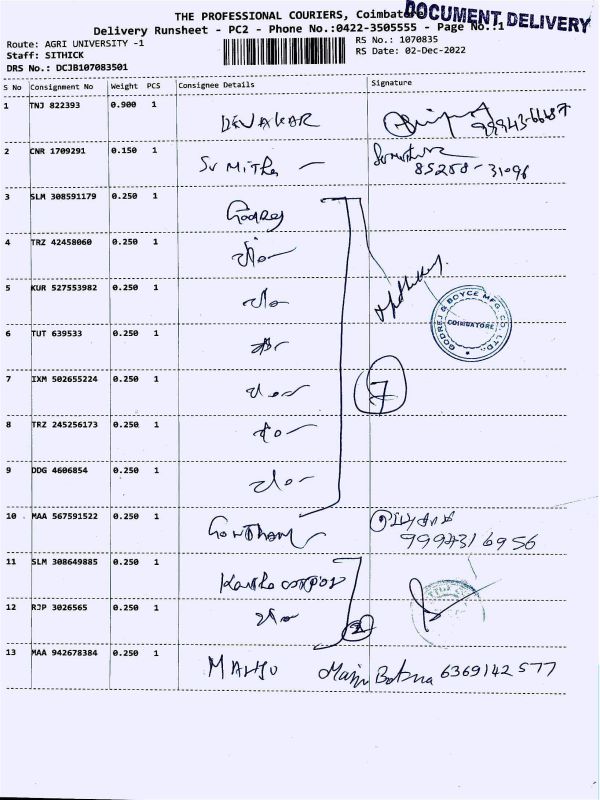 THE PROFESSIONAL COURIERS, Coimbatore
DOCUMENT DELIVERY
Delivery Runsheet - PC2 - Phone No.:0422-3505555 - Page No.:1
Route: AGRI UNIVERSITY -1
RS No.: 1070835
Staff: SITHICK
RS Date: 02-Dec-2022
DRS No.: DCJB107083501
S No Consignment No Weight PCS Consignee Details Signature
1 TNJ 822393 0.900 1 DEVAKAR
2 CNR 1709291 0.150 1 Sumitha 85258-31096
3 SLM 308591179 0.250 1 Godrej
4 TRZ 42458060 0.250 1
5 KUR 527553982 0.250 1
GODREJ & BOYCE MFG. CO. LTD.
COIMBATORE
6 TUT 639533 0.250 1
7 IXM 502655224 0.250 1 7
8 TRZ 245256173 0.250 1
9 DDG 4606854 0.250 1
10 MAA 567591522 0.250 1 Gowtham 9994316956
11 SLM 308649885 0.250 1
12 RJP 3026565 0.250 1 2
13 MAA 942678384 0.250 1 MANJU 6369142577